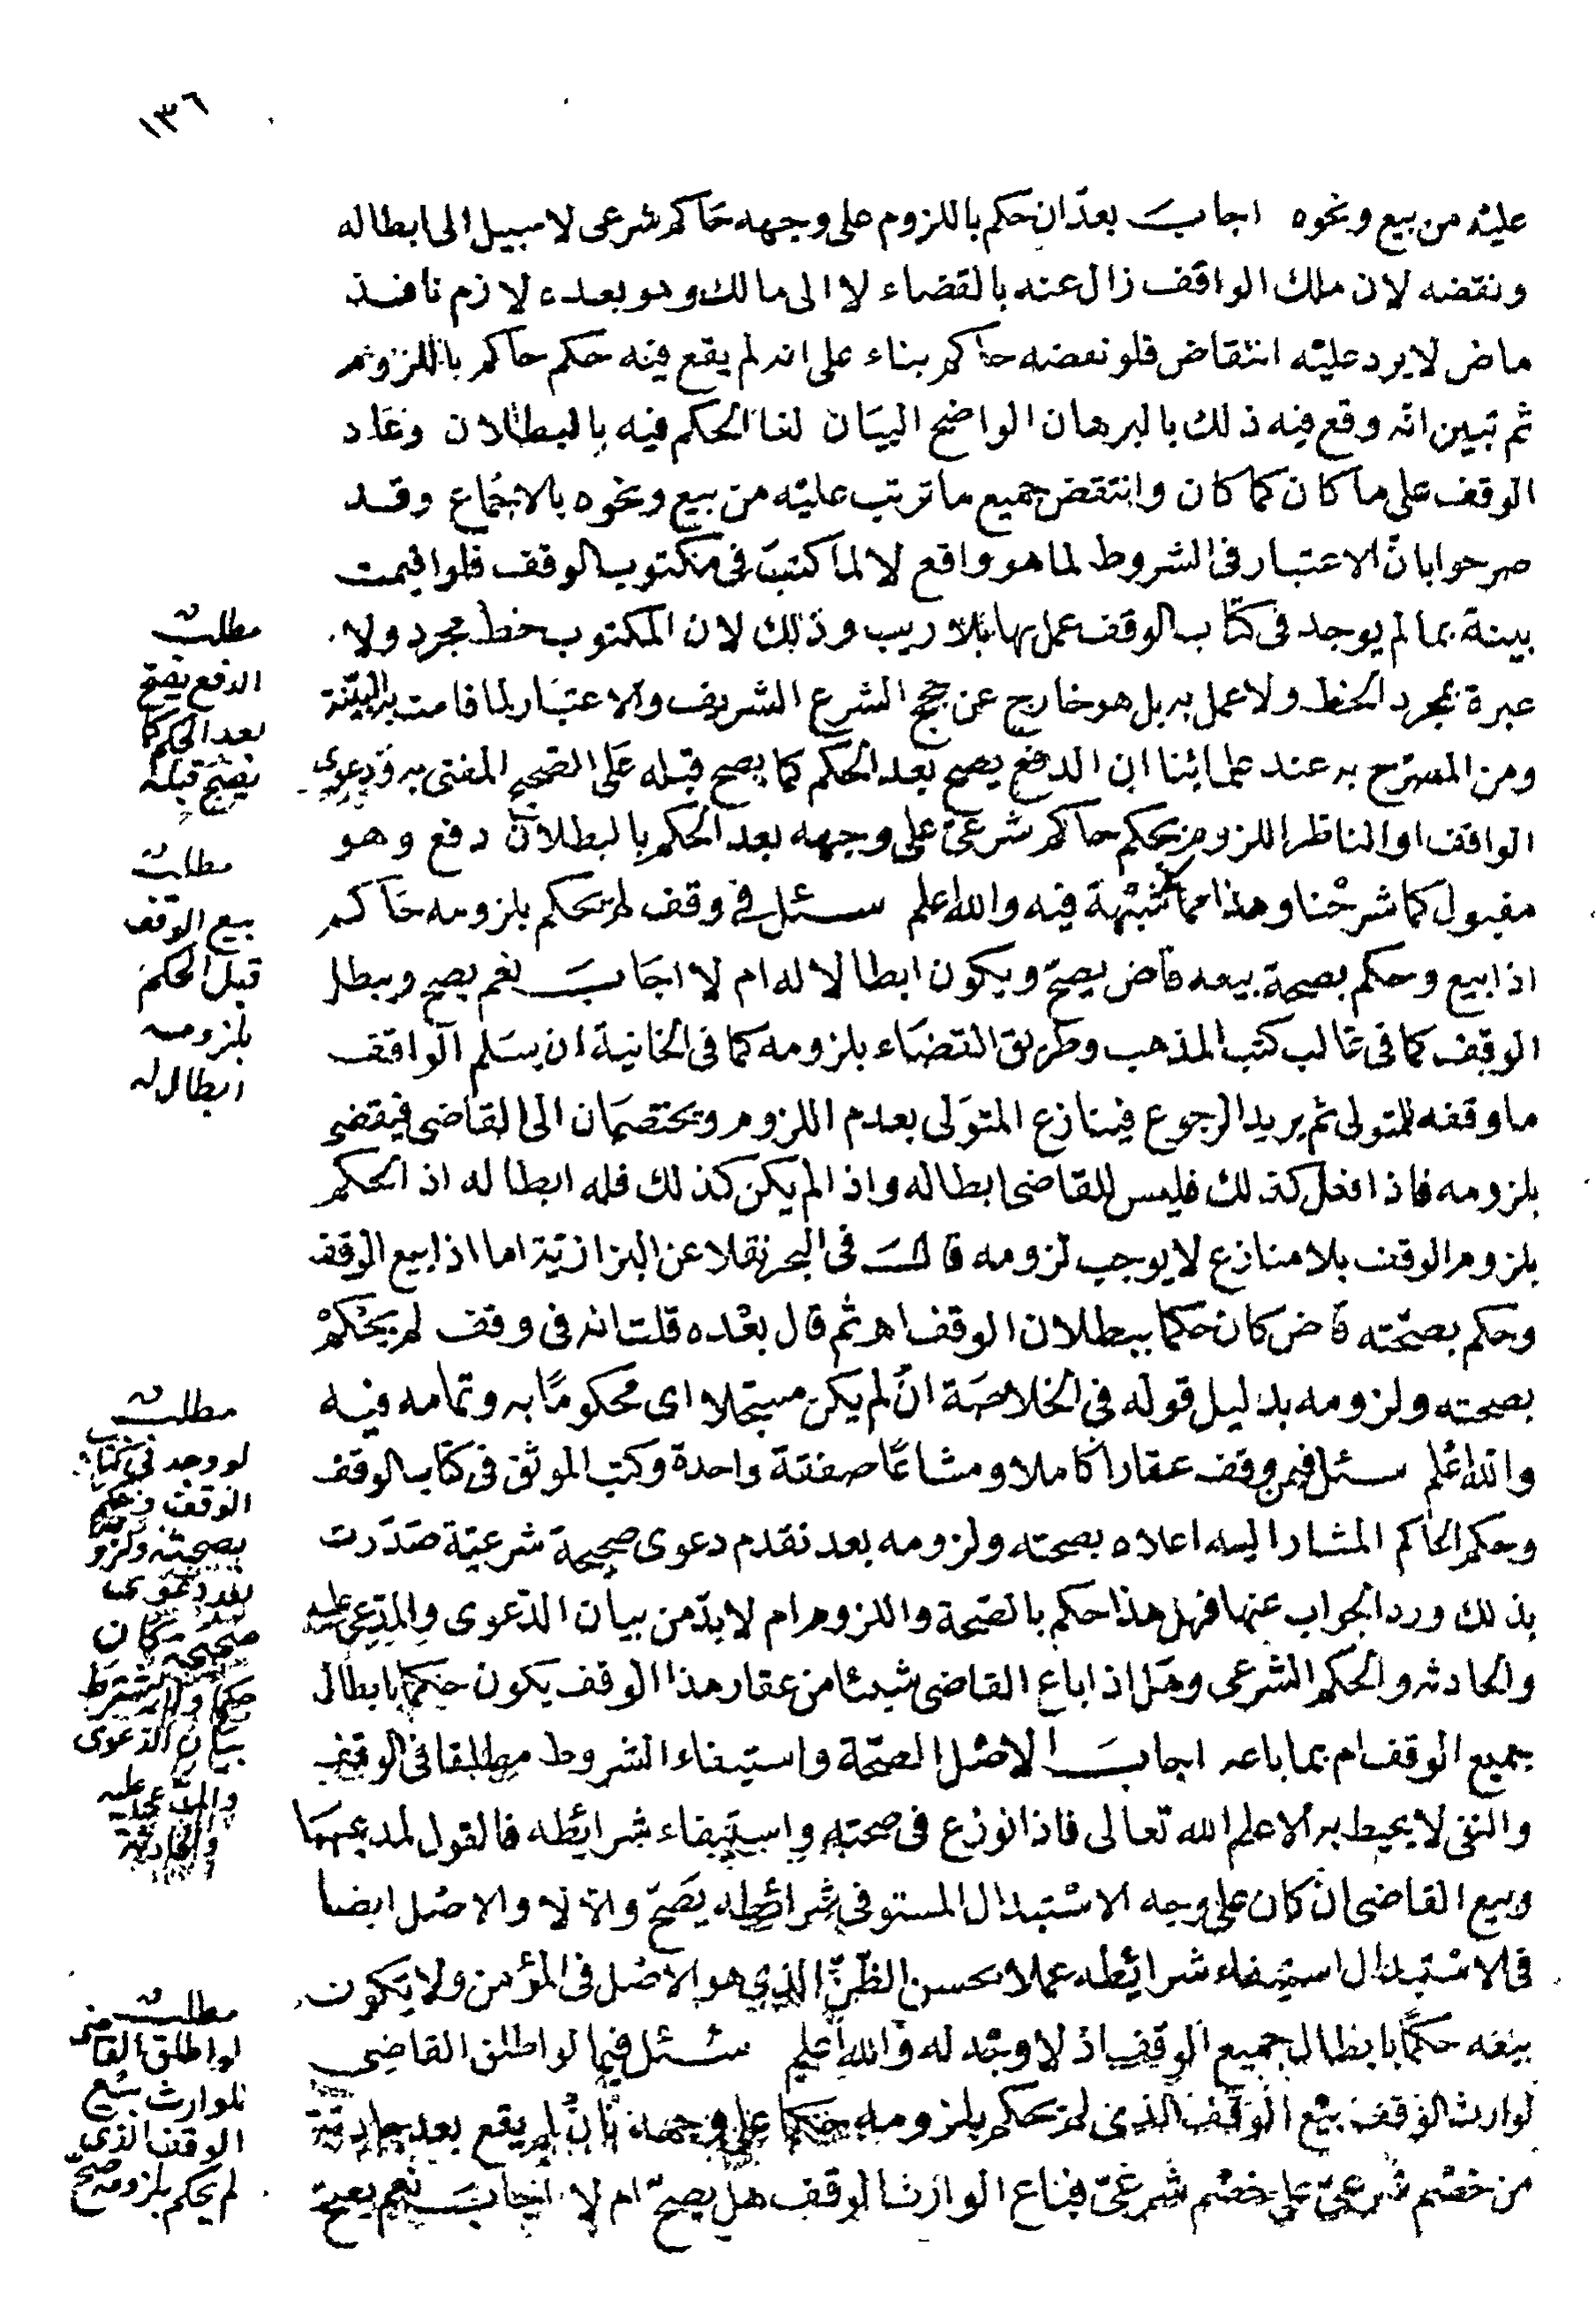 ١٣٦
عليه من بيع ونحوه اجاب بعد ان حكم باللزوم على وجهه حاكم شرعى لا سبيل الى ابطاله
ونقضه لان ملك الواقف زال عنه بالقضاء لا الى مالك وهو بعده لازم نافذ
ماض لا يرد عليه انتقاض فلو نقضه حاكم بناء على انه لم يقع فيه حكم حاكم باللزوم
ثم تبين انه وقع فيه ذلك بالبرهان الواضح البيان لغا الحكم فيه بالبطلان وعاد
الوقف على ما كان كما كان وانتقض جميع ما ترتب عليه من بيع ونحوه بالاجماع وقد
صرحوا بان الاعتبار فى الشروط لما هو واقع لا لما كتب فى مكتوب الوقف فلو اقيمت
بينة بما لم يوجد فى كتاب الوقف عمل بها بلا ريب وذلك لان المكتوب خط مجرد ولا
عبرة بمجرد الخط ولا عمل به بل هو خارج عن حجج الشرع الشريف والاعتبار لما قامت به البينة
ومن المصرح به عند علمائنا ان الدفع يصح بعد الحكم كما يصح قبله على الصحيح المفتى به ودعوى
الواقف او الناظر اللزوم بحكم حاكم شرعى على وجهه بعد الحكم بالبطلان دفع وهو
مقبول كما شرحنا وهذا مما لا شبهة فيه والله اعلم سئل فى وقف لم يحكم بلزومه حاكم
اذا بيع وحكم بصحة بيعه قاض يصح ويكون ابطالا له ام لا اجاب نعم يصح ويبطل
الوقف كما فى غالب كتب المذهب وطريق القضاء بلزومه كما فى الخانية ان يسلم الواقف
ما وقفه للمتولى ثم يريد الرجوع فينازع المتولى بعدم اللزوم ويختصمان الى القاضى فيقضى
بلزومه فاذا فعل كذلك فليس للقاضى ابطاله واذا لم يكن كذلك فله ابطاله اذ الحكم
بلزوم الوقف بلا منازع لا يوجب لزومه قال فى البحر نقلا عن البزازية اما اذا بيع الوقف
وحكم بصحته قاض كان حكما ببطلان الوقف اهـ ثم قال بعده قلت انه فى وقف لم يحكم
بصحته ولزومه بدليل قوله فى الخلاصة ان لم يكن مسجلا اى محكوما به وتمامه فيه
والله اعلم سئل فيمن وقف عقارا كاملا ومشاعا صفقة واحدة وكتب الموثق فى كتاب الوقف
وحكم الحاكم المشار اليه اعلاه بصحته ولزومه بعد تقدم دعوى صحيحة شرعية صدرت
بذلك ورد الجواب عنها فهل هذا حكم بالصحة واللزوم ام لا بد من بيان الدعوى والمدعى عليه
والحادثه والحكم الشرعى وهل اذا باع القاضى شيئا من عقار هذا الوقف يكون حكما بابطال
جميع الوقف ام بما باعه اجاب الاصل الصحة واستيفاء الشروط مطلقا فى الوقف
والنفى لا يحيط به الا علم الله تعالى فاذا نوزع فى صحته واستيفاء شرائطه فالقول لمدعيها
وبيع القاضى ان كان على وجه الاستبدال المستوفى شرائطه يصح والا لا والاصل ايضا
فى الاستبدال استيفاء شرائطه عملا بحسن الظن الذى هو الاصل فى المؤمن ولا يكون
بيعه حكما بابطال جميع الوقف اذ لا وجه له والله اعلم سئل فيما لو اطلق القاضى
لوارث الوقف بيع الوقف الذى لم يحكم بلزومه حكما على وجهه بان لم يقع بعد حادثة
من خصم شرعى على خصم شرعى فباع الوارث الوقف هل يصح ام لا اجاب نعم يصح
مطلب
الدفع يصح
بعد الحكم كما
يصح قبله
مطلب
بيع الوقف
قبل الحكم
بلزومه
ابطال له
مطلب
لو وجد فى كتاب
الوقف وحكم
بصحته ولزومه
بعد دعوى
صحيحة كان
حكما ولا يشترط
بيان الدعوى
والمدعى عليه
والحادثة
مطلب
لو اطلق القاضى
للوارث بيع
الوقف الذى
لم يحكم بلزومه صح